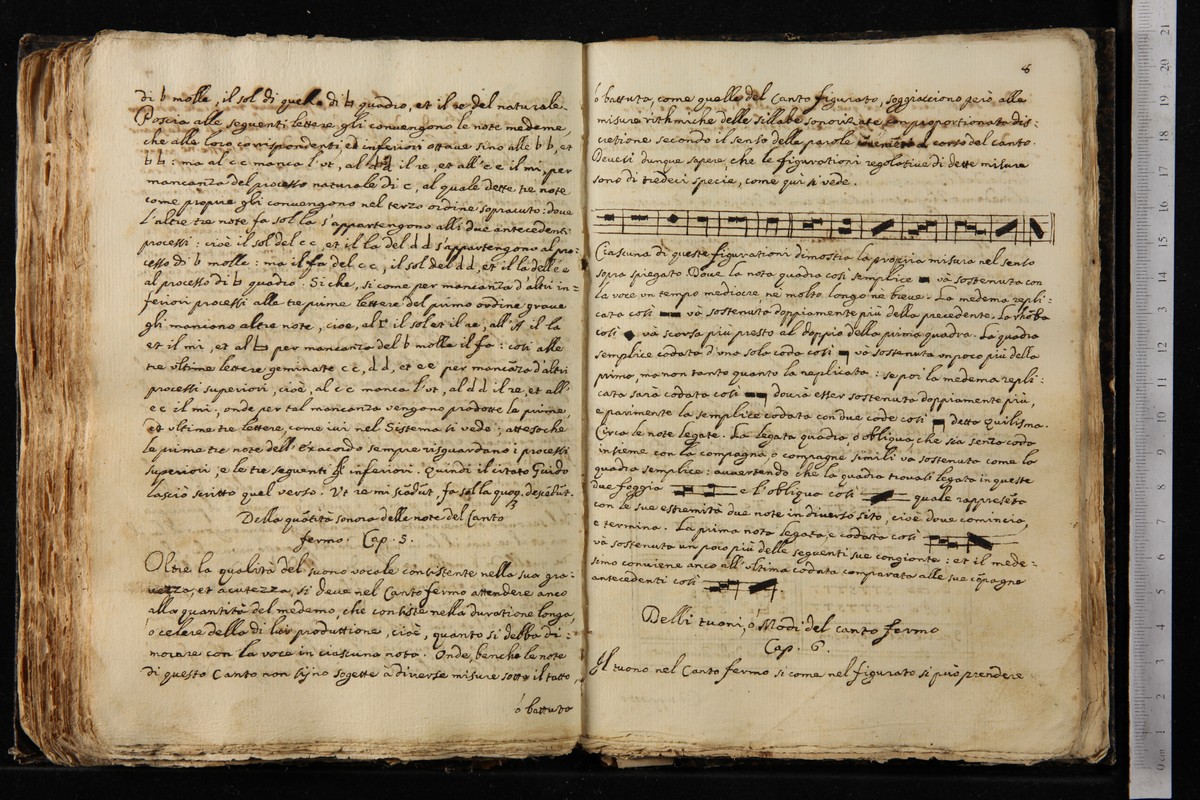 di b molle, il sol di quello di ♮ quadro, et il re del naturale.
Poscia alle seguenti lettere gli conuengono le note medeme,
che alle loro corrispondenti, et inferiori ottaue sino alle b b, et
♮♮: ma al c c manca l'vt, al dd il re, et all' e e il mi, per
mancanza del processo naturale di c, al quale dette tre note
come proprie gli conuengono nel terzo ordine sopracuto: doue
l'altre tre note fa sol la s'appartengono alli due antecedenti
processi: cioè il sol del c c, et il la del d d s'appartengono al pro=
cesso di b molle: ma il fa del c c, il sol del d d, et il la dell' e e
al processo di ♮ quadro. Si che, si come per mancanza d'altri in=
feriori processi alle tre prime lettere del primo ordine graue
gli mancano altre note, cioe, al Γ il sol et il re, all' A il la
et il mi, et al ♮ per mancanza del b molle il fa: così alle
tre vltime lettere geminate c c, d d, et e e per mancāza d'altri
processi superiori, cioè, al c c manca l'vt, al d d il re, et all'
e e il mi, onde per tal mancanza vengono prodotte le prime,
et vltime tre lettere, come iui nel Sistema si vede; attesoche
le prime tre note dell' Exacordo sempre risguardano i processi
superiori, e le tre seguenti gl' inferiori. Quindi il citato Guido
lasciò scritto quel verso. Vt re mi scādūt, fa sol la quoq. descēdūt.
Della quātità sonora delle note del Canto
fermo. Cap. 5.
Oltre la qualità del suono vocale consistente nella sua gra=
uezza, et acutezza, si deue nel Canto fermo attendere anco
alla quantità del medemo, che consiste nella duratione longa,
ò celere della di lui produttione, cioè, quanto si debba di=
morare con la voce in ciascuna nota. Onde, benche le note
di questo Canto non sijno sogette à diuerse misure sotto il tatto,
ó battuta
8
ò battuta, come quelle del Canto figurato, soggiacciono però alle
misure rithmiche delle sillabe sonorizate con proportionata dis=
cretione secondo il senso della parole corso del canto.
Deuesi dunque sapere, che le figurationi regolatiue di dette misure
sono di tredeci specie, come quì si vede.
Ciascuna di queste figurationi dimostra la propria misura nel senso
sopra spiegato. Doue la nota quadra così semplice và sostenuta con
la voce vn tempo mediocre, nè molto longo nè breue. La medema repli=
cata così và sostenuta doppiamente più della precedente. La rhōba
così và scorsa più presto al doppio della prima quadra. La quadra
semplice codata d'vna sola coda così và sostenuta vn poco più della
prima, ma non tanto quanto la replicata: se poi la medema repli=
cata sarà codata così dourà esser sostenuta doppiamente più,
e parimente la semplice codata con due code così detta Quilisma.
Circa le note legate. La legata quadra, ò obliqua, che sia senza coda
insieme con la compagna, ò compagne simili va sostenuta come la
quadra semplice: auuertendo che la quadra trouasi legata in queste
due foggia e l'obliqua così quale rappresēta
con le sue estremità due note in diuerso sito, cioè doue comincia,
e termina. La prima nota legata, e codata così
và sostenuta un poco più delle seguenti sue congionte: et il mede=
simo conuiene anco all' vltima codata comparata alle sue cōpagne
antecedenti così
Delli tuoni, ò Modi del canto fermo
Cap. 6.
Il tuono nel Canto fermo si come nel figurato si può prendere